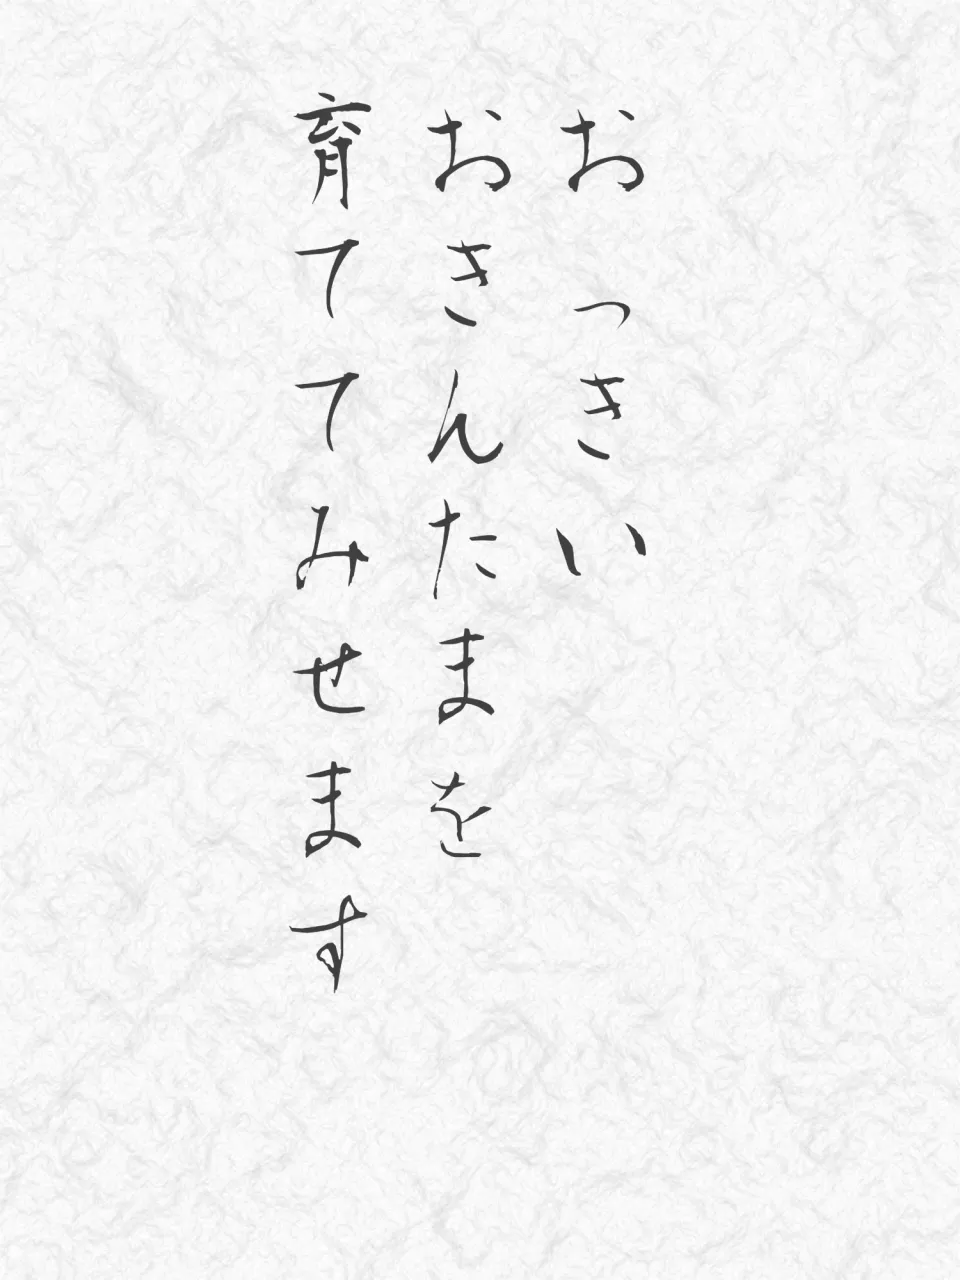 おっきい
おきんたまを
育ててみせます